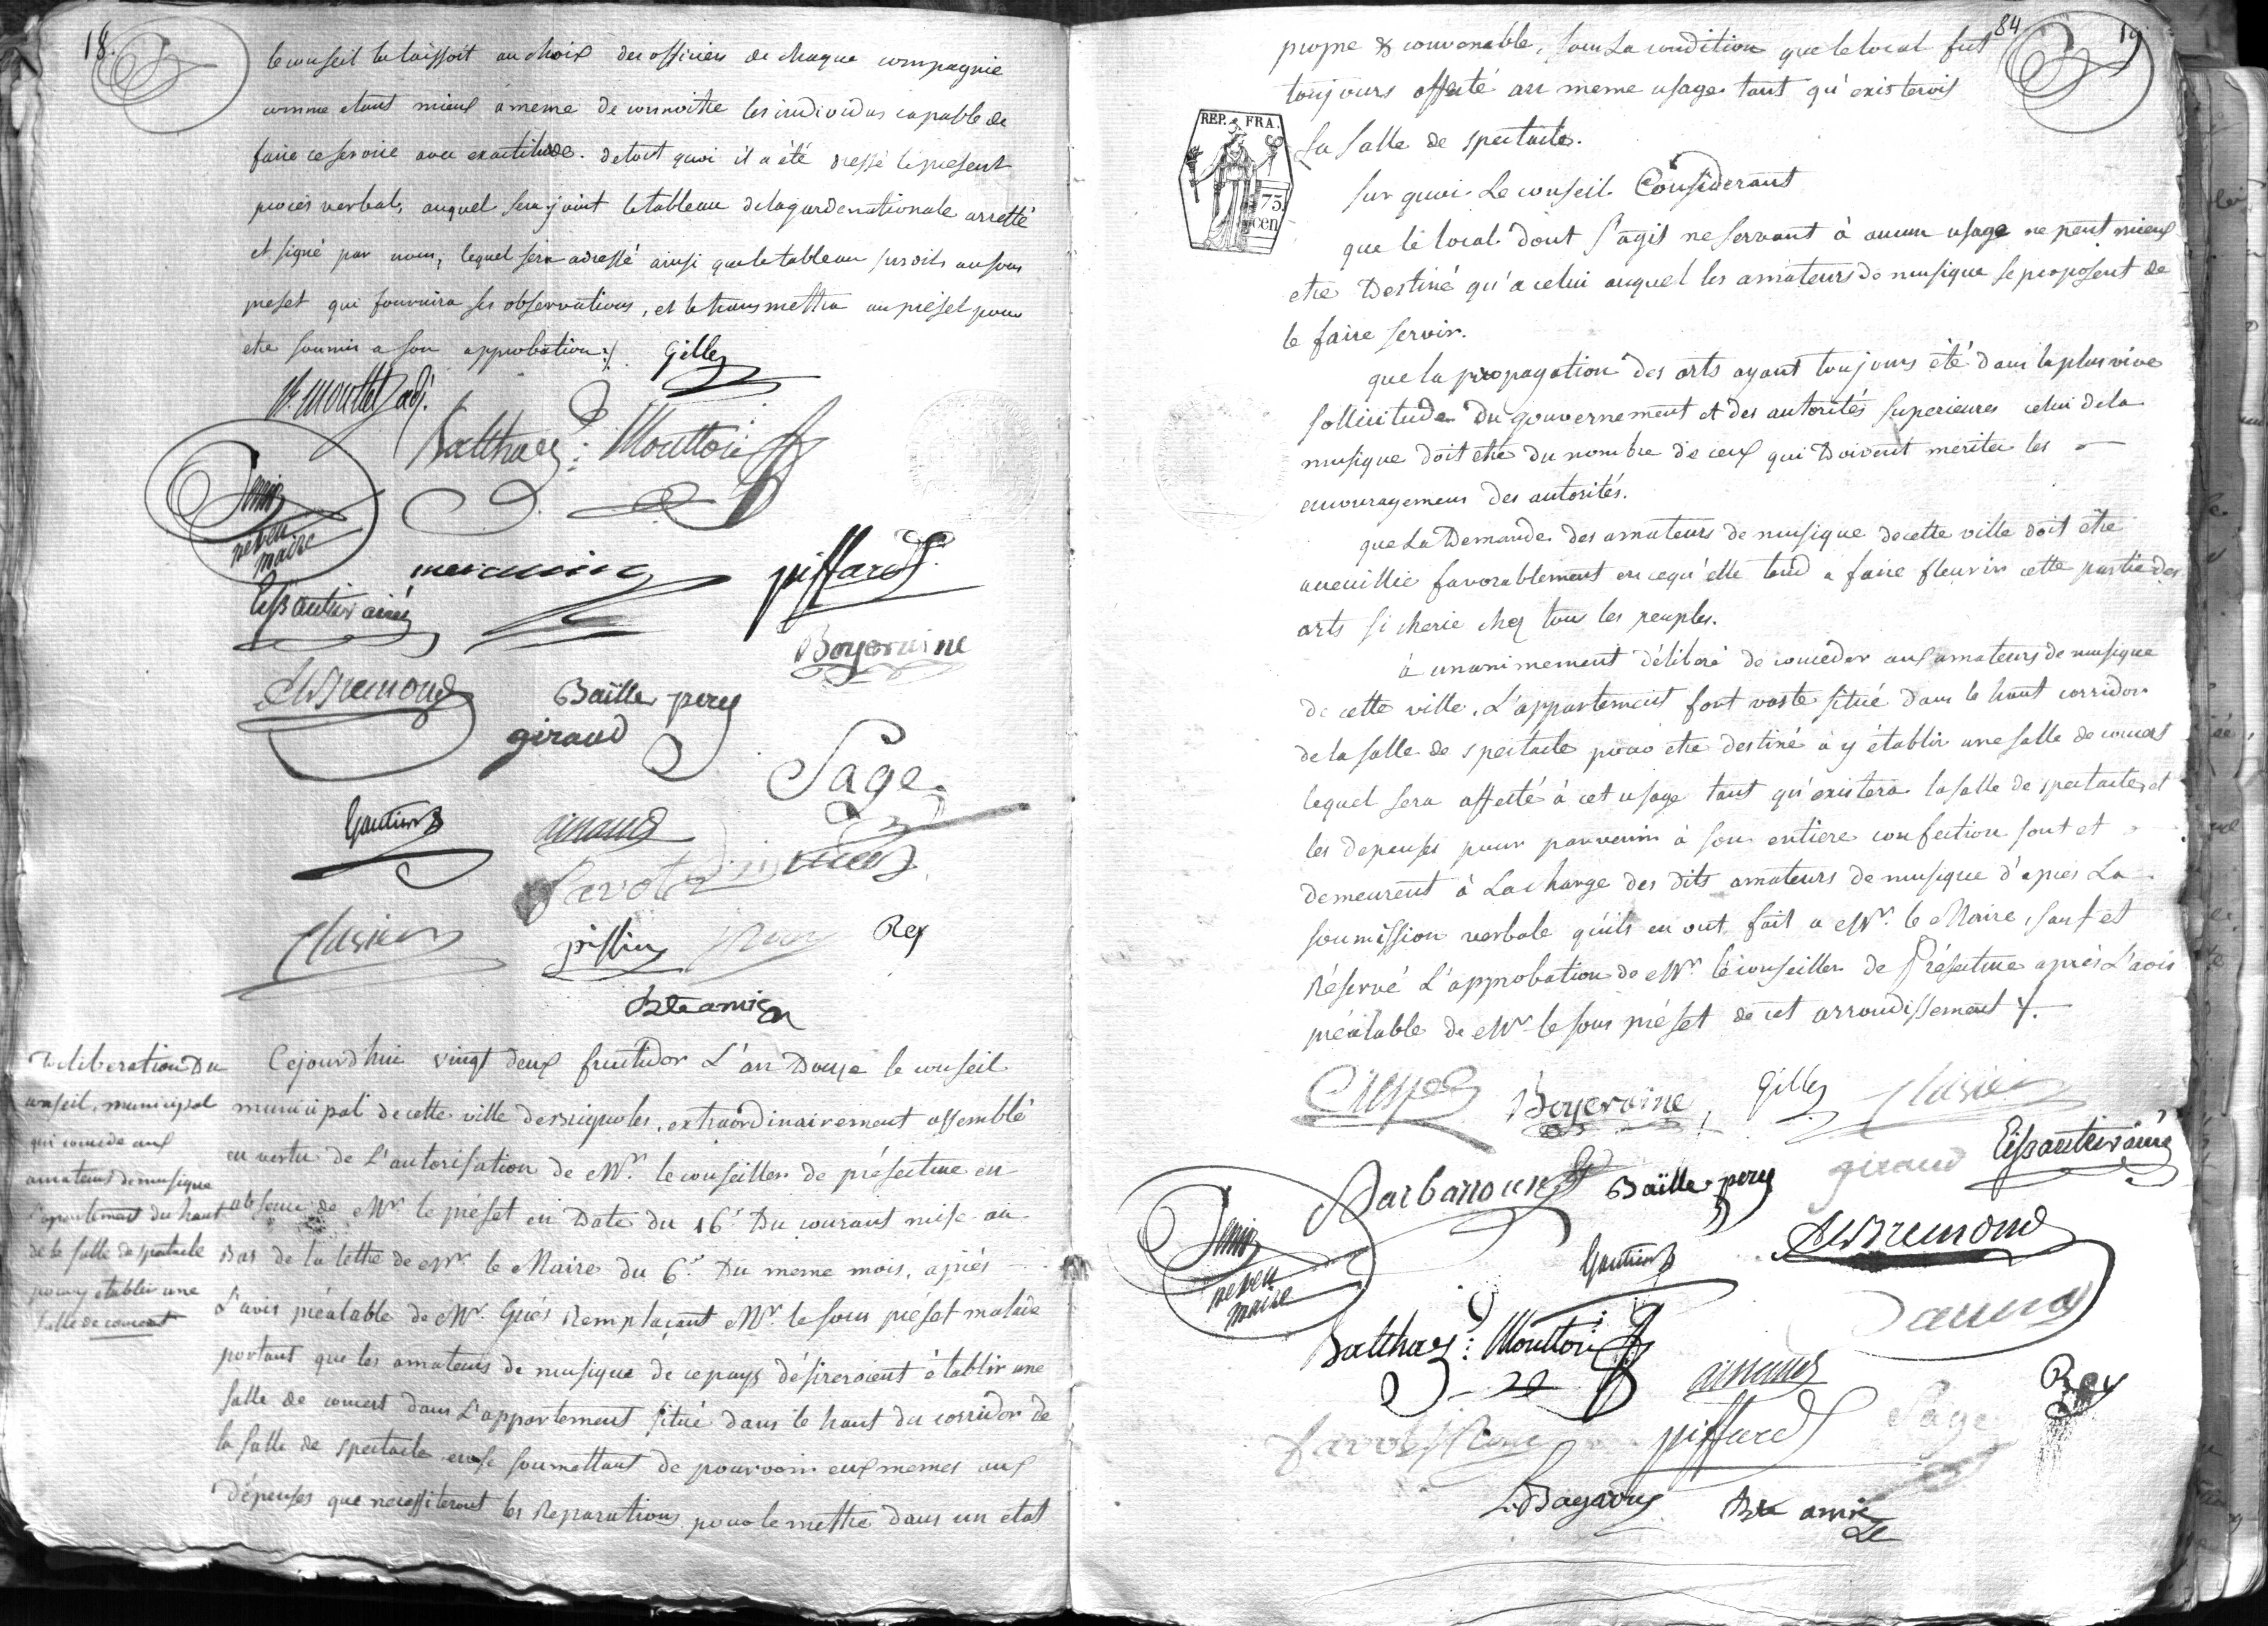 18.
le conseil la laissoit au choix des officiers de chaque compagnie
comme etant mieux à meme de connoitre les individus capable de
faire ce service avec exactitude. de tout quoi il a été dressé le present
procès verbal, auquel sera joint le tableau de la garde nationale arretté
et signé par nous, lequel sera adressé ainsi que le tableau susdits au sous
prefet qui fournira ses observations, et le transmettra au préfet pour
etre soumis a son approbation ./.
Gilles
Mouttet adj.
Balthaz.d: Moutton
neveu
maire
piffard
Eissautier ainé
Boyer aine
Bremond
Baille pere
giraud
Sage
Gautier
arnaud
Rey
Bte amic
Deliberation Du
conseil municipal
qui concede aux
amateurs de musique
l'apartement du haut
de la salle de spectacle
pour y etablir une
salle de concert
Cejourd'hui vingt deux fructidor L'an Douze le conseil
municipal de cette ville de Brignoles, extraordinairement assemblé
en vertu de L'autorisation de Mr. le conseiller de préfecture en
absence de Mr le préfet en Date du 16e. Du courant mise au
Bas de la lettre de Mr. le Maire du 6e. Du meme mois, après
L'avis préalable de Mr. Gués Remplaçant Mr. le sous préfet malade
portant que les amateurs de musique de ce pays désireroient établir une
salle de concert dans L'appartement situé dans le haut du corridor de
la salle de spectacle en se soumettant de pourvoir eux memes aux
Dépenses que necessiteront les Reparations pour le mettre dans un etat
84
19
propre & convenable, sous La condition que le local fut
toujours affecté au meme usage tant qu'existerois
La salle de spectacle.
REP. FRA.
75
cen
sur quoi Le conseil Considerant
que le local dont s'agit ne servant à aucun usage ne peut mieux
etre Destiné qu'a celui auquel les amateurs de musique se proposent de
le faire servir.
que la propagation des arts ayant toujours été dans la plus vive
sollicitude Du gouvernement et des autorités superieures celui de la
musique doit etre du nombre de ceux qui Doivent meriter les
encouragemens des autorités.
que La Demande des amateurs de musique de cette ville doit être
accueillie favorablement en ce qu'elle tend a faire fleurir cette partie des
arts si cherie chez tous les peuples.
à unanimement délibéré de conceder aux amateurs de musique
de cette ville. L'appartement fort vaste situé dans le haut corridor
de la salle de spectacle pour etre destiné à y établir une salle de concert
lequel sera affecté à cet usage tant qu'existera la salle de spectacle, et
les depenses pour parvenir à son entiere confection sont et
demeurent à La charge des dits amateurs de musique d'apres La
soumission verbale qu'ils en ont fait a Mr. le Maire, sauf et
Réservé L'approbation de Mr. le conseiller de Préfecture après L'avis
préalable de Mr le sous préfet de cet arrondissement ./.
Boyer aine
Gilles
Barbaroux
Baille pere
giraud
Eissautier ainé
neveu
maire
Gautier
Bremond
Balthaz.d: Moutton
arnaud
Rey
piffard
Sage
Bte amic